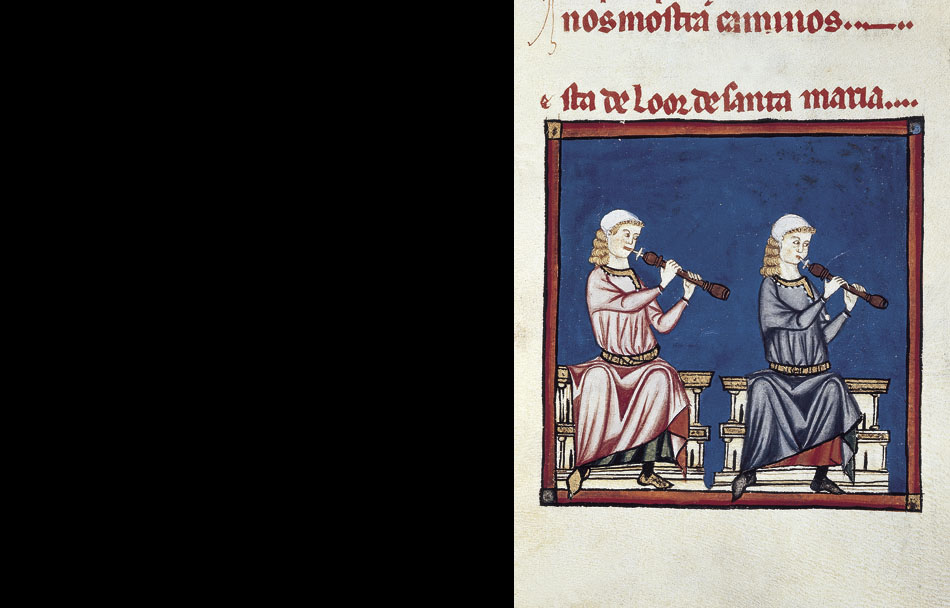 nos mostrá caminos
esta de Loor de santa maria